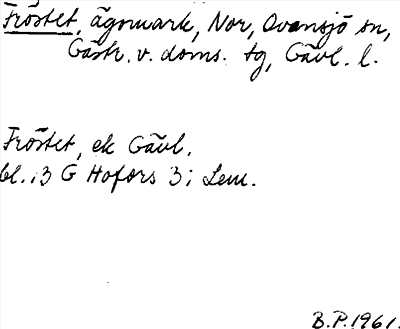 Fröstet, ägomark, Nor, Ovansjö sn,
Gästr. v. doms. tg, Gävl. l.
Fröstet, ek Gävl.
bl. 13 G Hofors 3; Lem.
B.P. 1961.